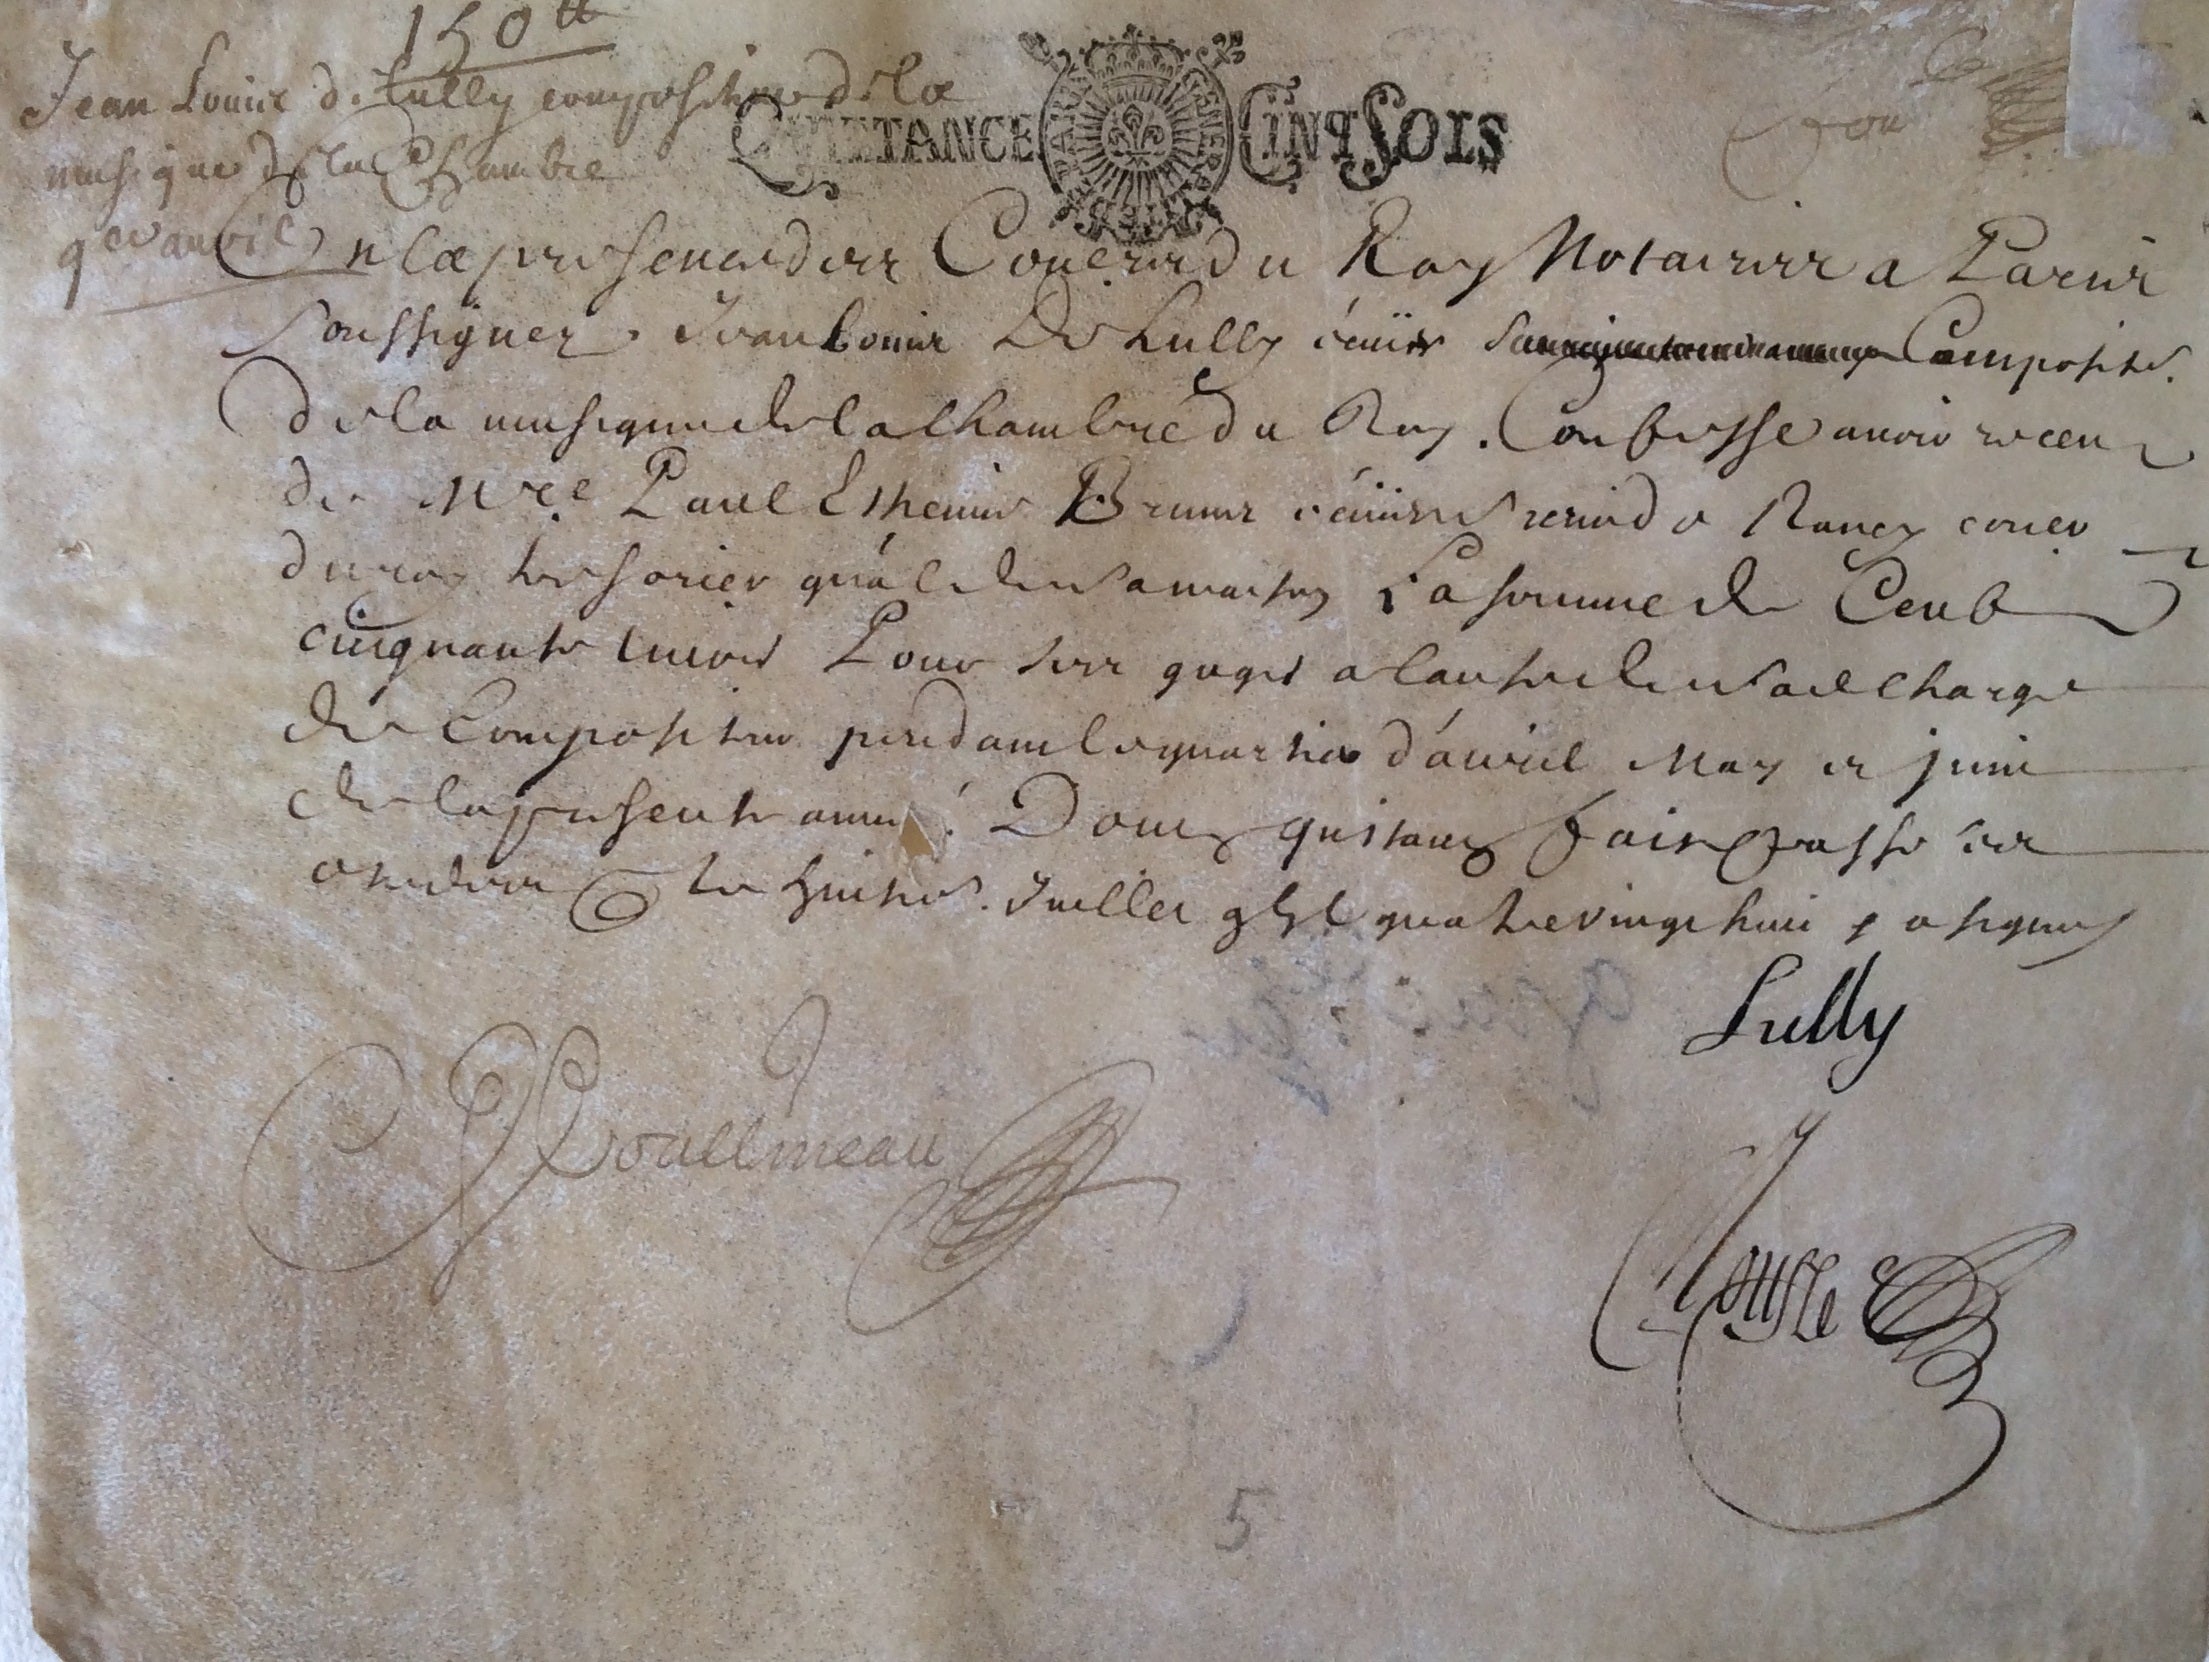 150tt
Jean Louis de Lully compositeur de la
musique de la Chambre
qer avril
QUITTANCE CINT SOLS
En la presence des Coners du Roy Notaires a Paris
soussignez Jean Louis De Lully écuier Composite.
de la musique de la Chambre du Roy. Confesse avoir receu
de Mre Paul Estienne Brunet écuier de Rancy coner
du roy tresorier gnāl de sa maison La somme de Cent
cinquante livres Pour ses gages a cause de sad charge
de Compositeur pendant le quartier d'avril May et juin
de la presente année Dont quitance fait passé es
estudes le huitie. Juillet gbjc quatrevingt huit & a signé
Lully
5